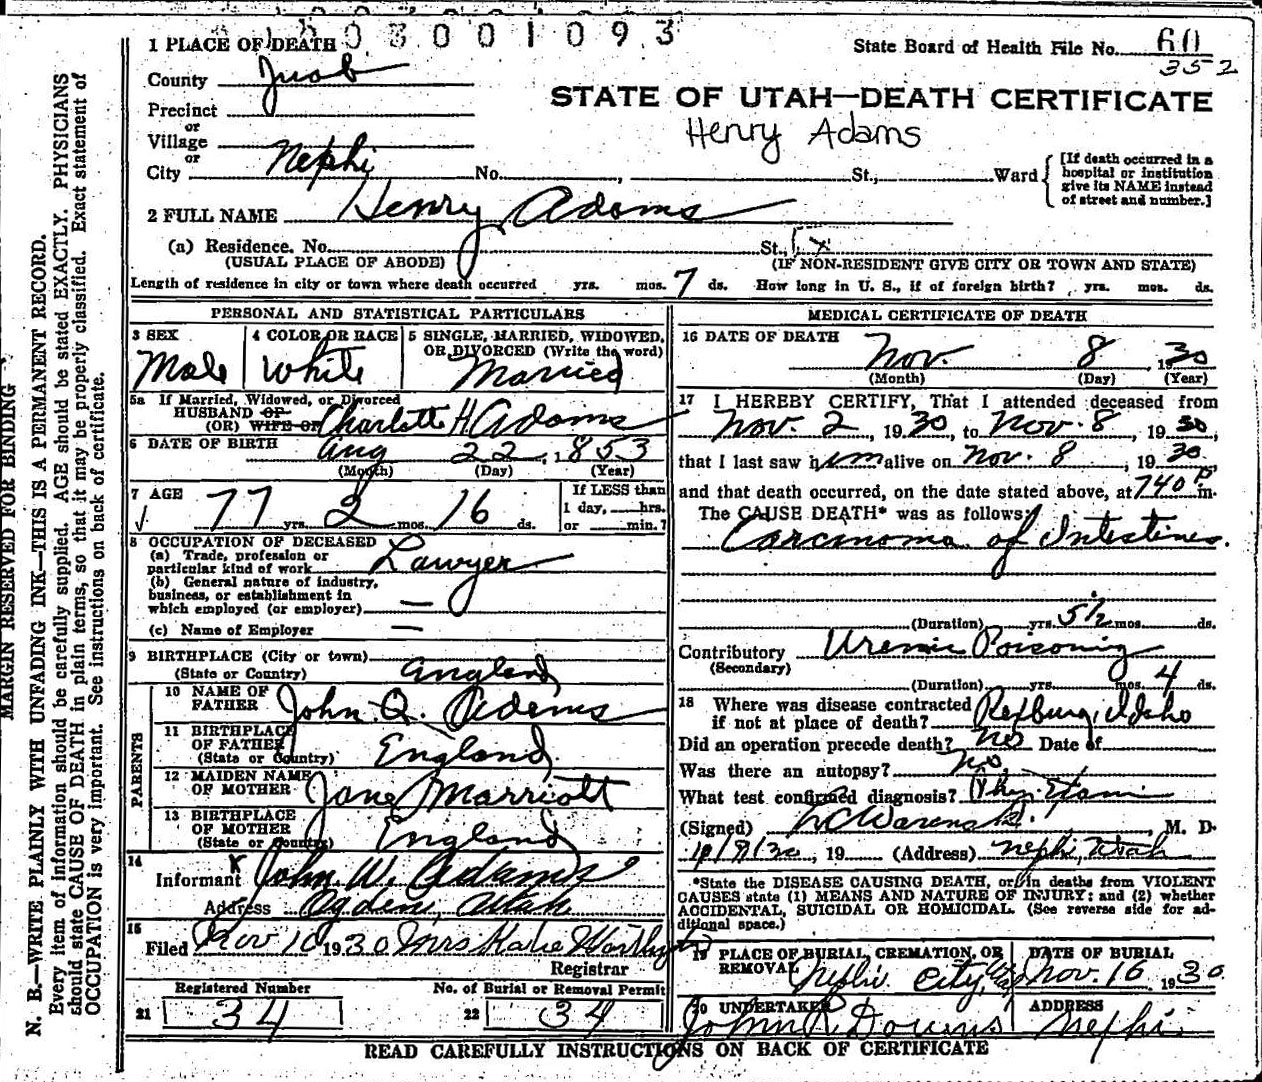 0 3 0 0 1 0 9 3
State Board of Health File No. 60
352
1 PLACE OF DEATH
County Juab
STATE OF UTAH—DEATH CERTIFICATE
Henry Adams
Precinct
or
Village
or
City Nephi No. , St., Ward
[If death occurred in a hospital or institution give its NAME instead of street and number.]
2 FULL NAME Henry Adams
(a) Residence. No. St., x
(USUAL PLACE OF ABODE) (IF NON-RESIDENT GIVE CITY OR TOWN AND STATE)
Length of residence in city or town where death occurred yrs. mos. 7 ds. How long in U. S., if of foreign birth? yrs. mos. ds.
PERSONAL AND STATISTICAL PARTICULARS
3 SEX Male
4 COLOR OR RACE White
5 SINGLE, MARRIED, WIDOWED, OR DIVORCED (Write the word) Married
5a If Married, Widowed, or Divorced
HUSBAND OF
(OR) WIFE OF Charlotte H Adams
6 DATE OF BIRTH Aug 22, 1853
(Month) (Day) (Year)
7 AGE 77 yrs. 2 mos. 16 ds.
If LESS than
1 day, hrs.
or min.?
8 OCCUPATION OF DECEASED
(a) Trade, profession or
particular kind of work Lawyer
(b) General nature of industry,
business, or establishment in
which employed (or employer) —
(c) Name of Employer —
9 BIRTHPLACE (City or town)
(State or Country) England
PARENTS
10 NAME OF
FATHER John Q. Adams
11 BIRTHPLACE
OF FATHER England
(State or Country)
12 MAIDEN NAME
OF MOTHER Jane Marriott
13 BIRTHPLACE
OF MOTHER England
(State or Country)
14
Informant x John W. Adams
Address Ogden, Utah
15
Filed Nov 10 1930 Mrs Katie
Registrar
Registered Number
21 34
No. of Burial or Removal Permit
22 34
MEDICAL CERTIFICATE OF DEATH
16 DATE OF DEATH
Nov. 8, 1930
(Month) (Day) (Year)
17 I HEREBY CERTIFY, That I attended deceased from
Nov. 2, 1930, to Nov. 8, 1930,
that I last saw him alive on Nov. 8, 1930
and that death occurred, on the date stated above, at 740 P m.
The CAUSE DEATH* was as follows:
Carcinoma of Intestines.
(Duration) yrs. 5½ mos. ds.
Contributory Uremic Poisoning
(Secondary)
(Duration) yrs. mos. 4 ds.
18 Where was disease contracted
if not at place of death? Rexburg, Idaho
Did an operation precede death? No Date of
Was there an autopsy? No
What test confirmed diagnosis?
(Signed) , M. D.
, 19 (Address) Nephi, Utah
*State the DISEASE CAUSING DEATH, or in deaths from VIOLENT
CAUSES state (1) MEANS AND NATURE OF INJURY; and (2) whether
ACCIDENTAL, SUICIDAL OR HOMICIDAL. (See reverse side for ad-
ditional space.)
19 PLACE OF BURIAL, CREMATION, OR
REMOVAL Nephi City
DATE OF BURIAL
Nov. 16 1930
20 UNDERTAKER
John R Downs
ADDRESS
Nephi
READ CAREFULLY INSTRUCTIONS ON BACK OF CERTIFICATE
MARGIN RESERVED FOR BINDING
N. B.—WRITE PLAINLY WITH UNFADING INK—THIS IS A PERMANENT RECORD.
Every item of information should be carefully supplied. AGE should be stated EXACTLY. PHYSICIANS
should state CAUSE OF DEATH in plain terms, so that it may be properly classified. Exact statement of
OCCUPATION is very important. See instructions on back of certificate.